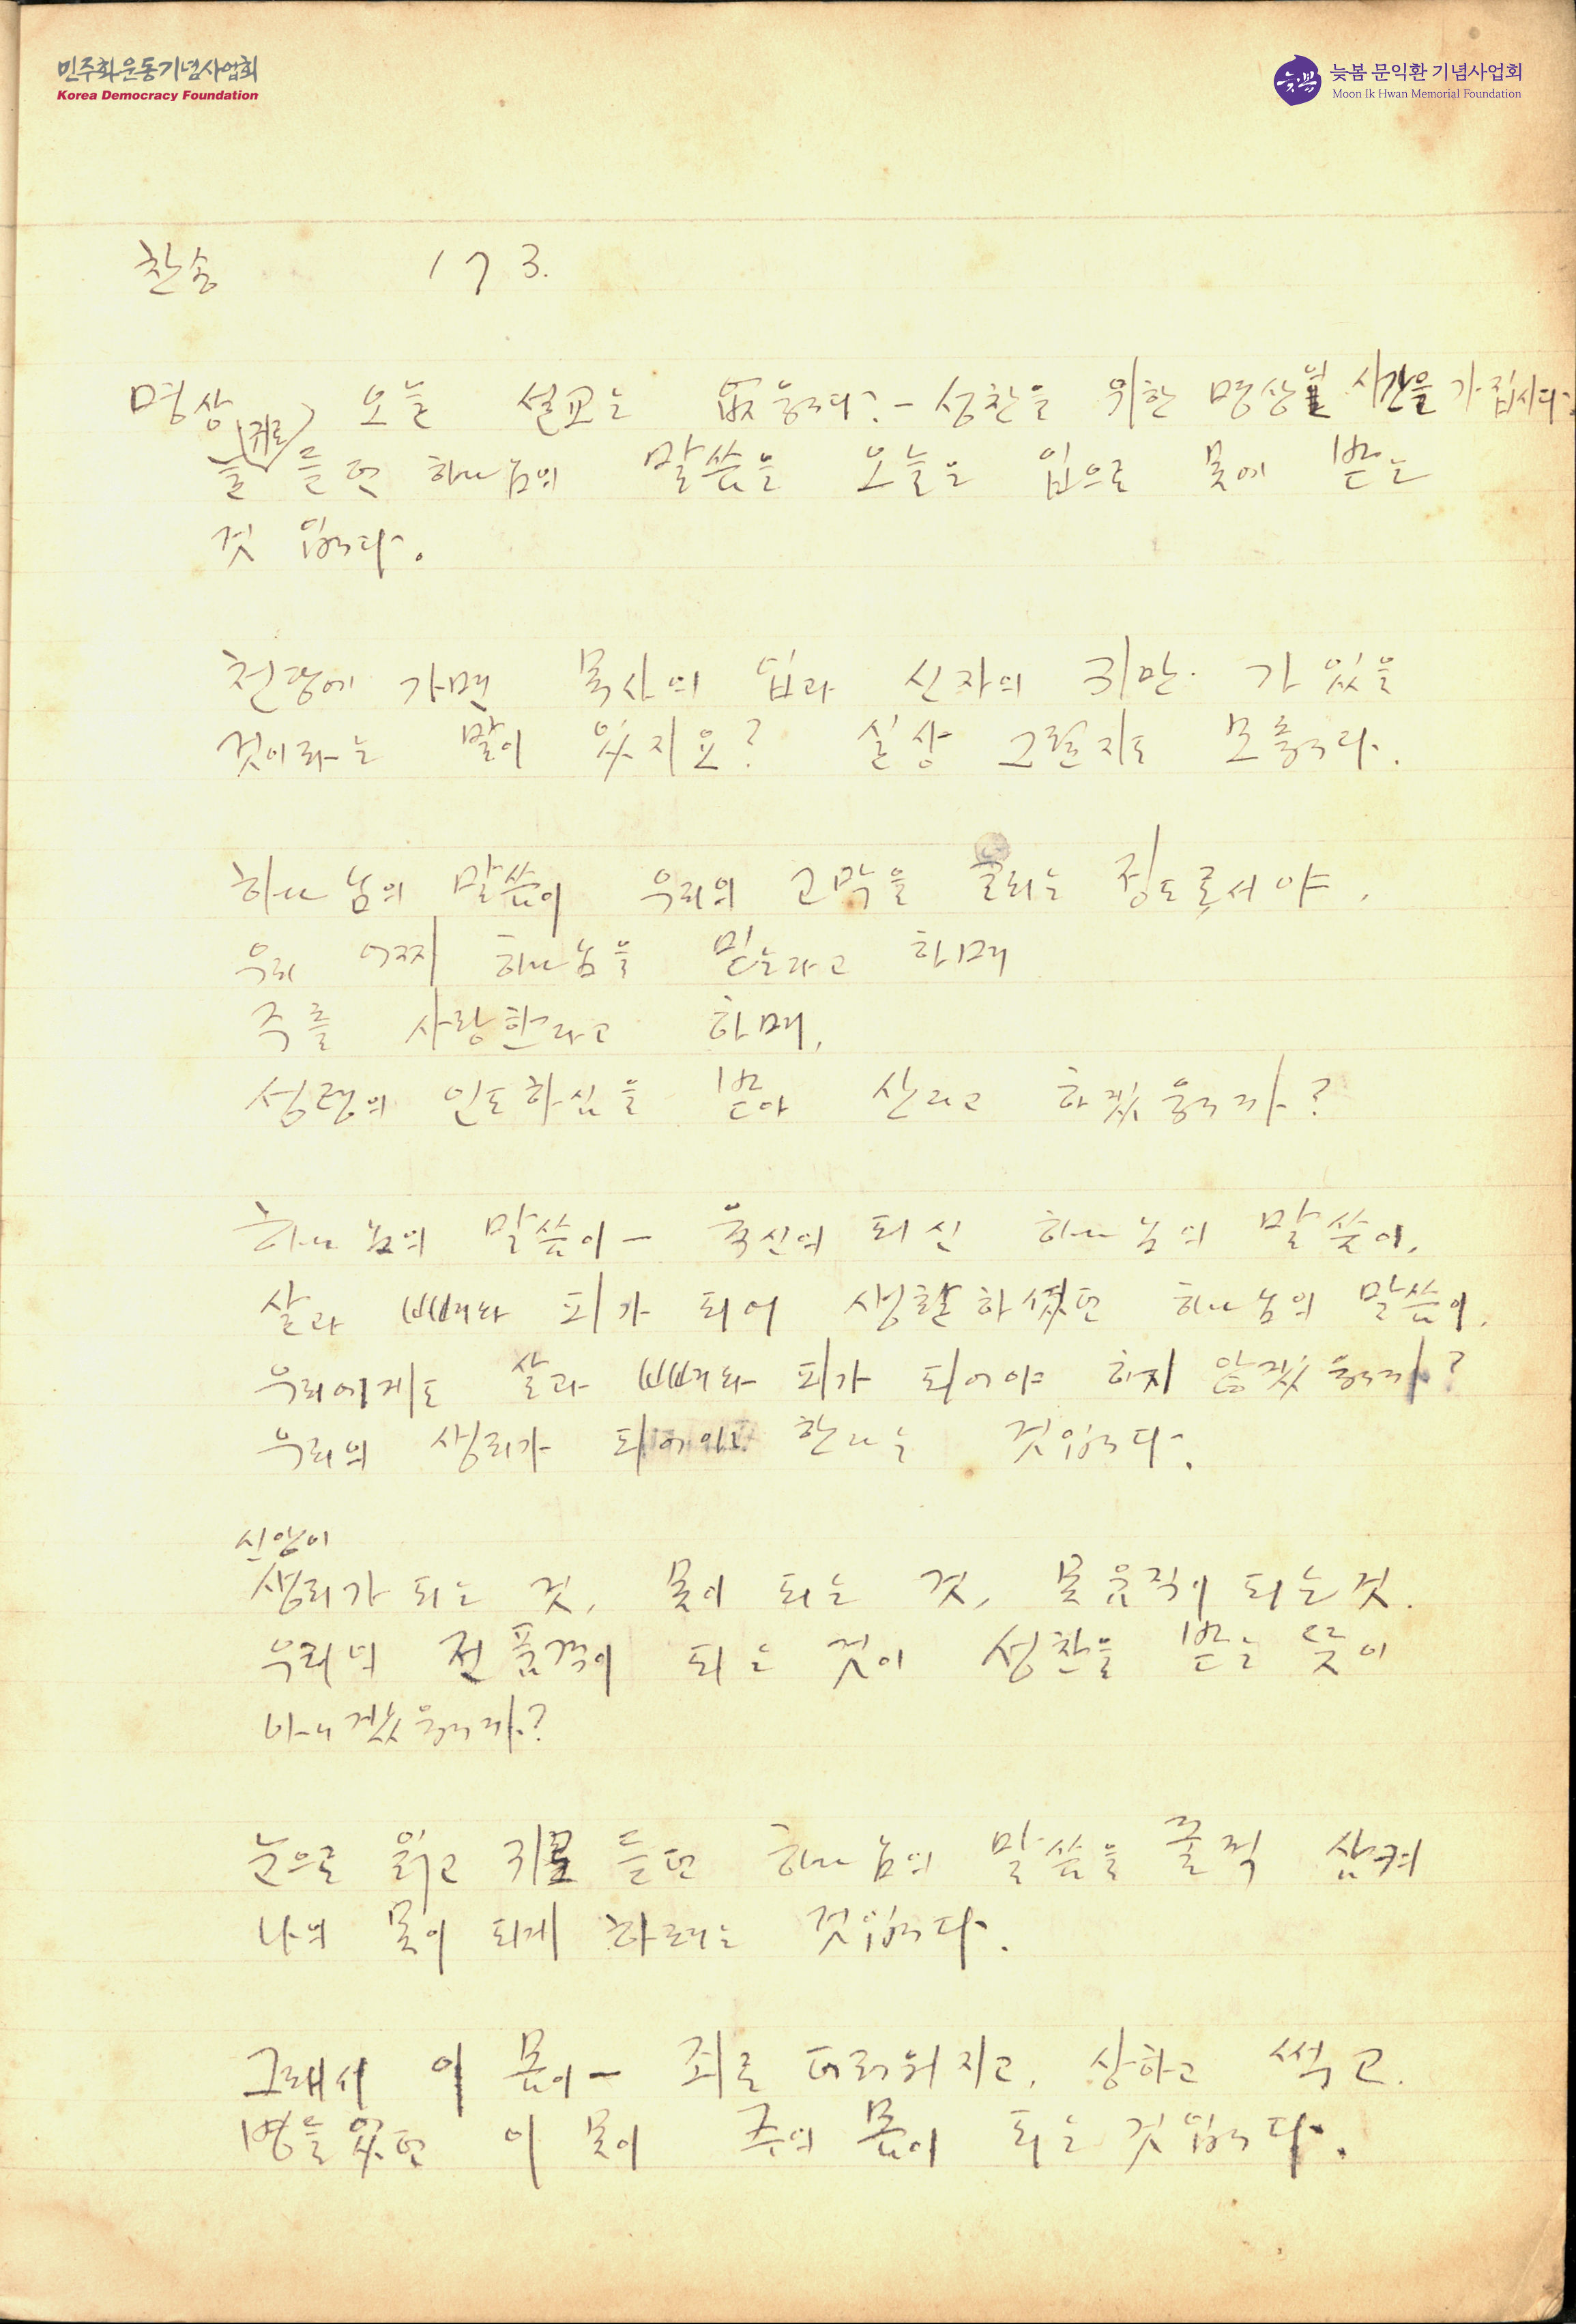 민주화운동기념사업회
Korea Democracy Foundation
늦봄 문익환 기념사업회
Moon Ik Hwan Memorial Foundation
찬송 173.
명상 오늘 설교는 없읍니다. - 성찬을 위한 명상의 시간을 가집시다.
늘 (귀로) 듣던 하나님의 말씀을 오늘은 입으로 몸에 받는
것 입니다.
천당에 가면 목사의 입과 신자의 귀만 가 있을
것이라는 말이 있지요? 실상 그럴지도 모릅니다.
하나님의 말씀이 우리의 고막을 울리는 정도로서야,
우리 어찌 하나님을 믿는다고 하며
주를 사랑한다고 하며,
성령의 인도하심을 받아 산다고 하겠읍니까?
하나님의 말씀이 - 육신이 되신 하나님의 말씀이,
살과 뼈와 피가 되어 생활하셨던 하나님의 말씀이,
우리에게도 살과 뼈와 피가 되어야 하지 않겠읍니까?
우리의 생리가 되어야 한다는 것입니다.
신앙이
생리가 되는 것, 몸이 되는 것, 몸 움직이 되는 것.
우리의 전 품격이 되는 것이 성찬을 받는 뜻이
아니겠읍니까?
눈으로 읽고 귀로 듣던 하나님의 말씀을 꿀꺽 삼켜
나의 몸이 되게 하려는 것입니다.
그래서 이 몸이 - 죄로 더러워지고, 상하고 썩고.
병들었던 이 몸이 주의 몸이 되는 것입니다.